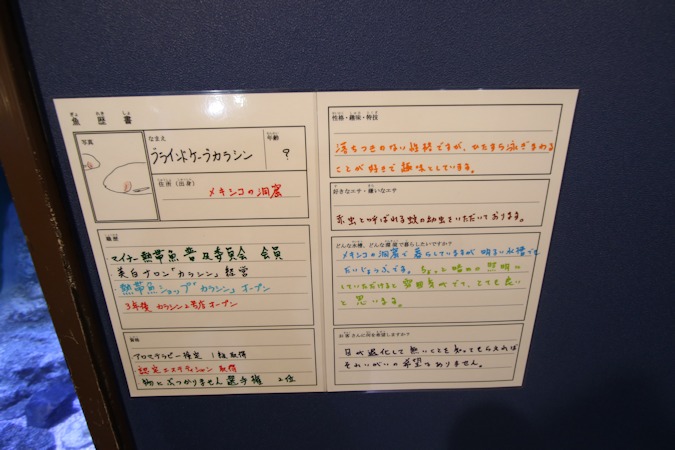 魚歴書
写真
なまえ
ブラインドケーブカラシン
年齢
?
住所(出身)
メキシコの洞窟
職歴
マイナー熱帯魚普及委員会 会員
美白サロン「カラシン」経営
熱帯魚ショップ「カラシン」オープン
3年後 カラシン2号店オープン
資格
アロマテラピー検定 1級取得
認定エステティシャン 取得
物にぶつかりません選手権 2位
性格・趣味・特技
落ちつきのない性格ですが、ひたすら泳ぎまわる
ことが好きで趣味としています。
好きなエサ・嫌いなエサ
赤虫と呼ばれる蚊の幼虫をいただいております。
どんな水槽、どんな環境で暮らしたいですか?
メキシコの洞窟で暮らしていますが 明るい水槽でも
だいじょうぶです。ちょっと暗めの照明に
していただけると雰囲気がでて、とても良い
と思います。
お客さんに何を希望しますか?
目が退化して無いことを知ってもらえれば
それいがいの希望でありません。